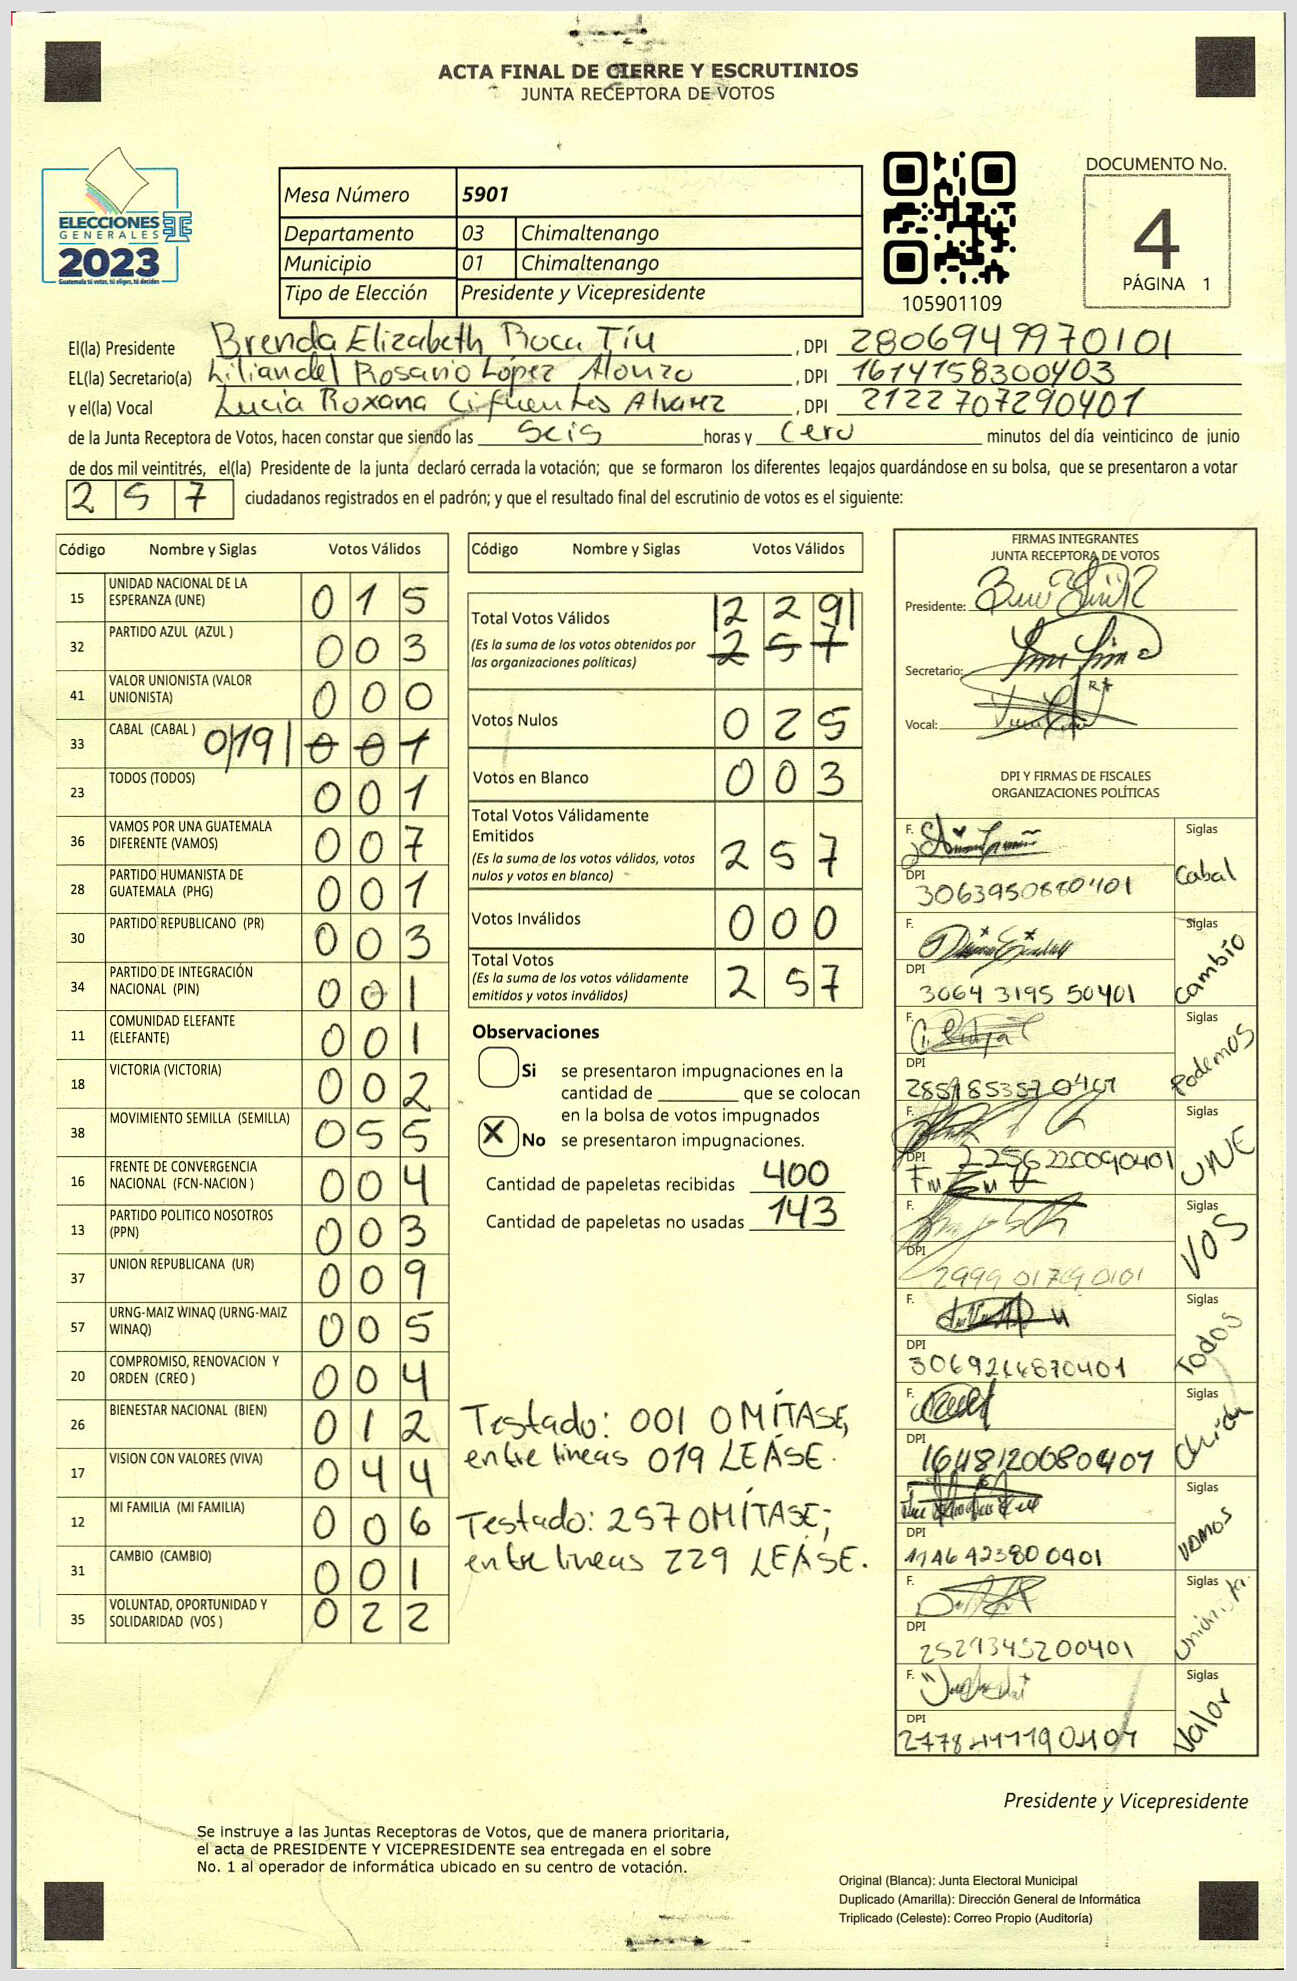 ACTA FINAL DE CIERRE Y ESCRUTINIOS
JUNTA RECEPTORA DE VOTOS
ELECCIONES
GENERALES
2023
Guatemala tú votas, tú eliges, tú decides
TSE
Mesa Número 5901
Departamento 03 Chimaltenango
Municipio 01 Chimaltenango
Tipo de Elección Presidente y Vicepresidente
105901109
DOCUMENTO No.
4
PÁGINA 1
El(la) Presidente Brenda Elizabeth Roca Tíu, DPI 2806949970101
EL(la) Secretario(a) Lilian del Rosario López Alonzo, DPI 1614158300403
y el(la) Vocal Lucía Roxana Cifuentes Alvarez, DPI 2122707290401
de la Junta Receptora de Votos, hacen constar que siendo las seis horas y cero minutos del día veinticinco de junio
de dos mil veintitrés, el(la) Presidente de la junta declaró cerrada la votación; que se formaron los diferentes legajos guardándose en su bolsa, que se presentaron a votar
257 ciudadanos registrados en el padrón; y que el resultado final del escrutinio de votos es el siguiente:
Código Nombre y Siglas Votos Válidos
15 UNIDAD NACIONAL DE LA ESPERANZA (UNE) 015
32 PARTIDO AZUL (AZUL ) 003
41 VALOR UNIONISTA (VALOR UNIONISTA) 000
33 CABAL (CABAL ) 019 001
23 TODOS (TODOS) 001
36 VAMOS POR UNA GUATEMALA DIFERENTE (VAMOS) 007
28 PARTIDO HUMANISTA DE GUATEMALA (PHG) 001
30 PARTIDO REPUBLICANO (PR) 003
34 PARTIDO DE INTEGRACIÓN NACIONAL (PIN) 001
11 COMUNIDAD ELEFANTE (ELEFANTE) 001
18 VICTORIA (VICTORIA) 002
38 MOVIMIENTO SEMILLA (SEMILLA) 055
16 FRENTE DE CONVERGENCIA NACIONAL (FCN-NACION ) 004
13 PARTIDO POLITICO NOSOTROS (PPN) 003
37 UNION REPUBLICANA (UR) 009
57 URNG-MAIZ WINAQ (URNG-MAIZ WINAQ) 005
20 COMPROMISO, RENOVACION Y ORDEN (CREO ) 004
26 BIENESTAR NACIONAL (BIEN) 012
17 VISION CON VALORES (VIVA) 044
12 MI FAMILIA (MI FAMILIA) 006
31 CAMBIO (CAMBIO) 001
35 VOLUNTAD, OPORTUNIDAD Y SOLIDARIDAD (VOS ) 022
Código Nombre y Siglas Votos Válidos
Total Votos Válidos 229
(Es la suma de los votos obtenidos por las organizaciones políticas) 257
Votos Nulos 025
Votos en Blanco 003
Total Votos Válidamente Emitidos
(Es la suma de los votos válidos, votos nulos y votos en blanco) 257
Votos Inválidos 000
Total Votos
(Es la suma de los votos válidamente emitidos y votos inválidos) 257
Observaciones
Si se presentaron impugnaciones en la
cantidad de ________ que se colocan
en la bolsa de votos impugnados
X No se presentaron impugnaciones.
Cantidad de papeletas recibidas 400
Cantidad de papeletas no usadas 143
Testado: 001 OMÍTASE,
entre lineas 019 LEÁSE.
Testado: 257 OMÍTASE;
entre lineas 229 LEÁSE.
FIRMAS INTEGRANTES
JUNTA RECEPTORA DE VOTOS
Presidente:
Secretario:
Vocal:
DPI Y FIRMAS DE FISCALES
ORGANIZACIONES POLÍTICAS
F. Siglas
DPI 3063950880401 Cabal
F. Siglas
DPI 3064 3195 50401 Cambio
F. Siglas
DPI Podemos
F. Siglas
DPI 2256220090401 UNE
F. Siglas
DPI 2999 01769 0101 VOS
F. Siglas
DPI Todos
F. Siglas
DPI
F. Siglas
DPI Vamos
F. Siglas
DPI 2529345200401 Unionista
F. Siglas
DPI Valor
Presidente y Vicepresidente
Se instruye a las Juntas Receptoras de Votos, que de manera prioritaria,
el acta de PRESIDENTE Y VICEPRESIDENTE sea entregada en el sobre
No. 1 al operador de informática ubicado en su centro de votación.
Original (Blanca): Junta Electoral Municipal
Duplicado (Amarilla): Dirección General de Informática
Triplicado (Celeste): Correo Propio (Auditoría)